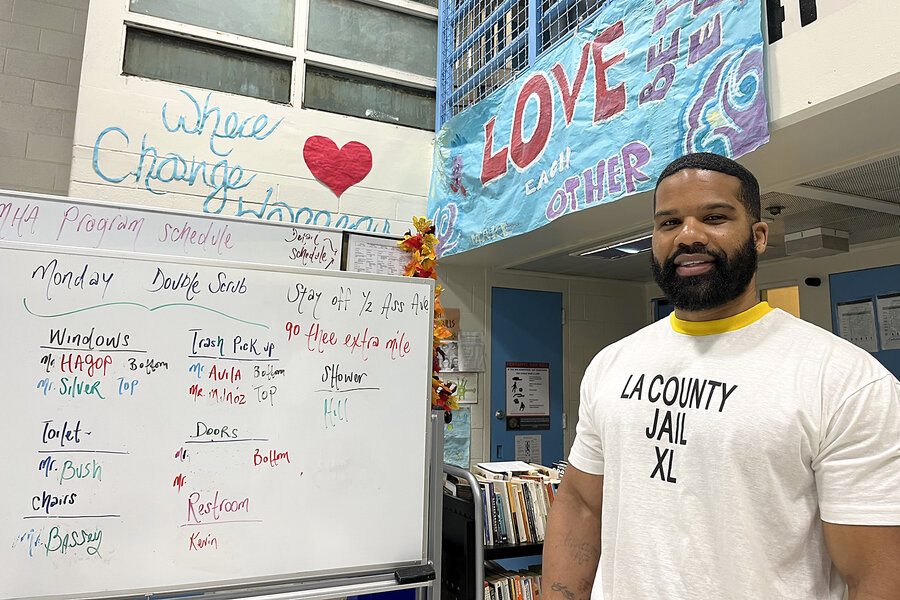 Where
Change
LOVE
EACH
OTHER
MHA Program Schedule
Detail
Schedules
Monday Double Scrub
Stay off 1/2 Ass Ave
go thee extra mile
Windows
Mr HAGOP Bottom
Mr. Silver Top
Trash Pick up
Mr AVILA Bottom
Mr. Milnoz Top
Shower
Hill
Toilet
Mr. Bush
Doors
Mr. Bottom
Mr.
Chairs
Mr. Bassey
Restroom
Kevin
LA COUNTY
JAIL
XL